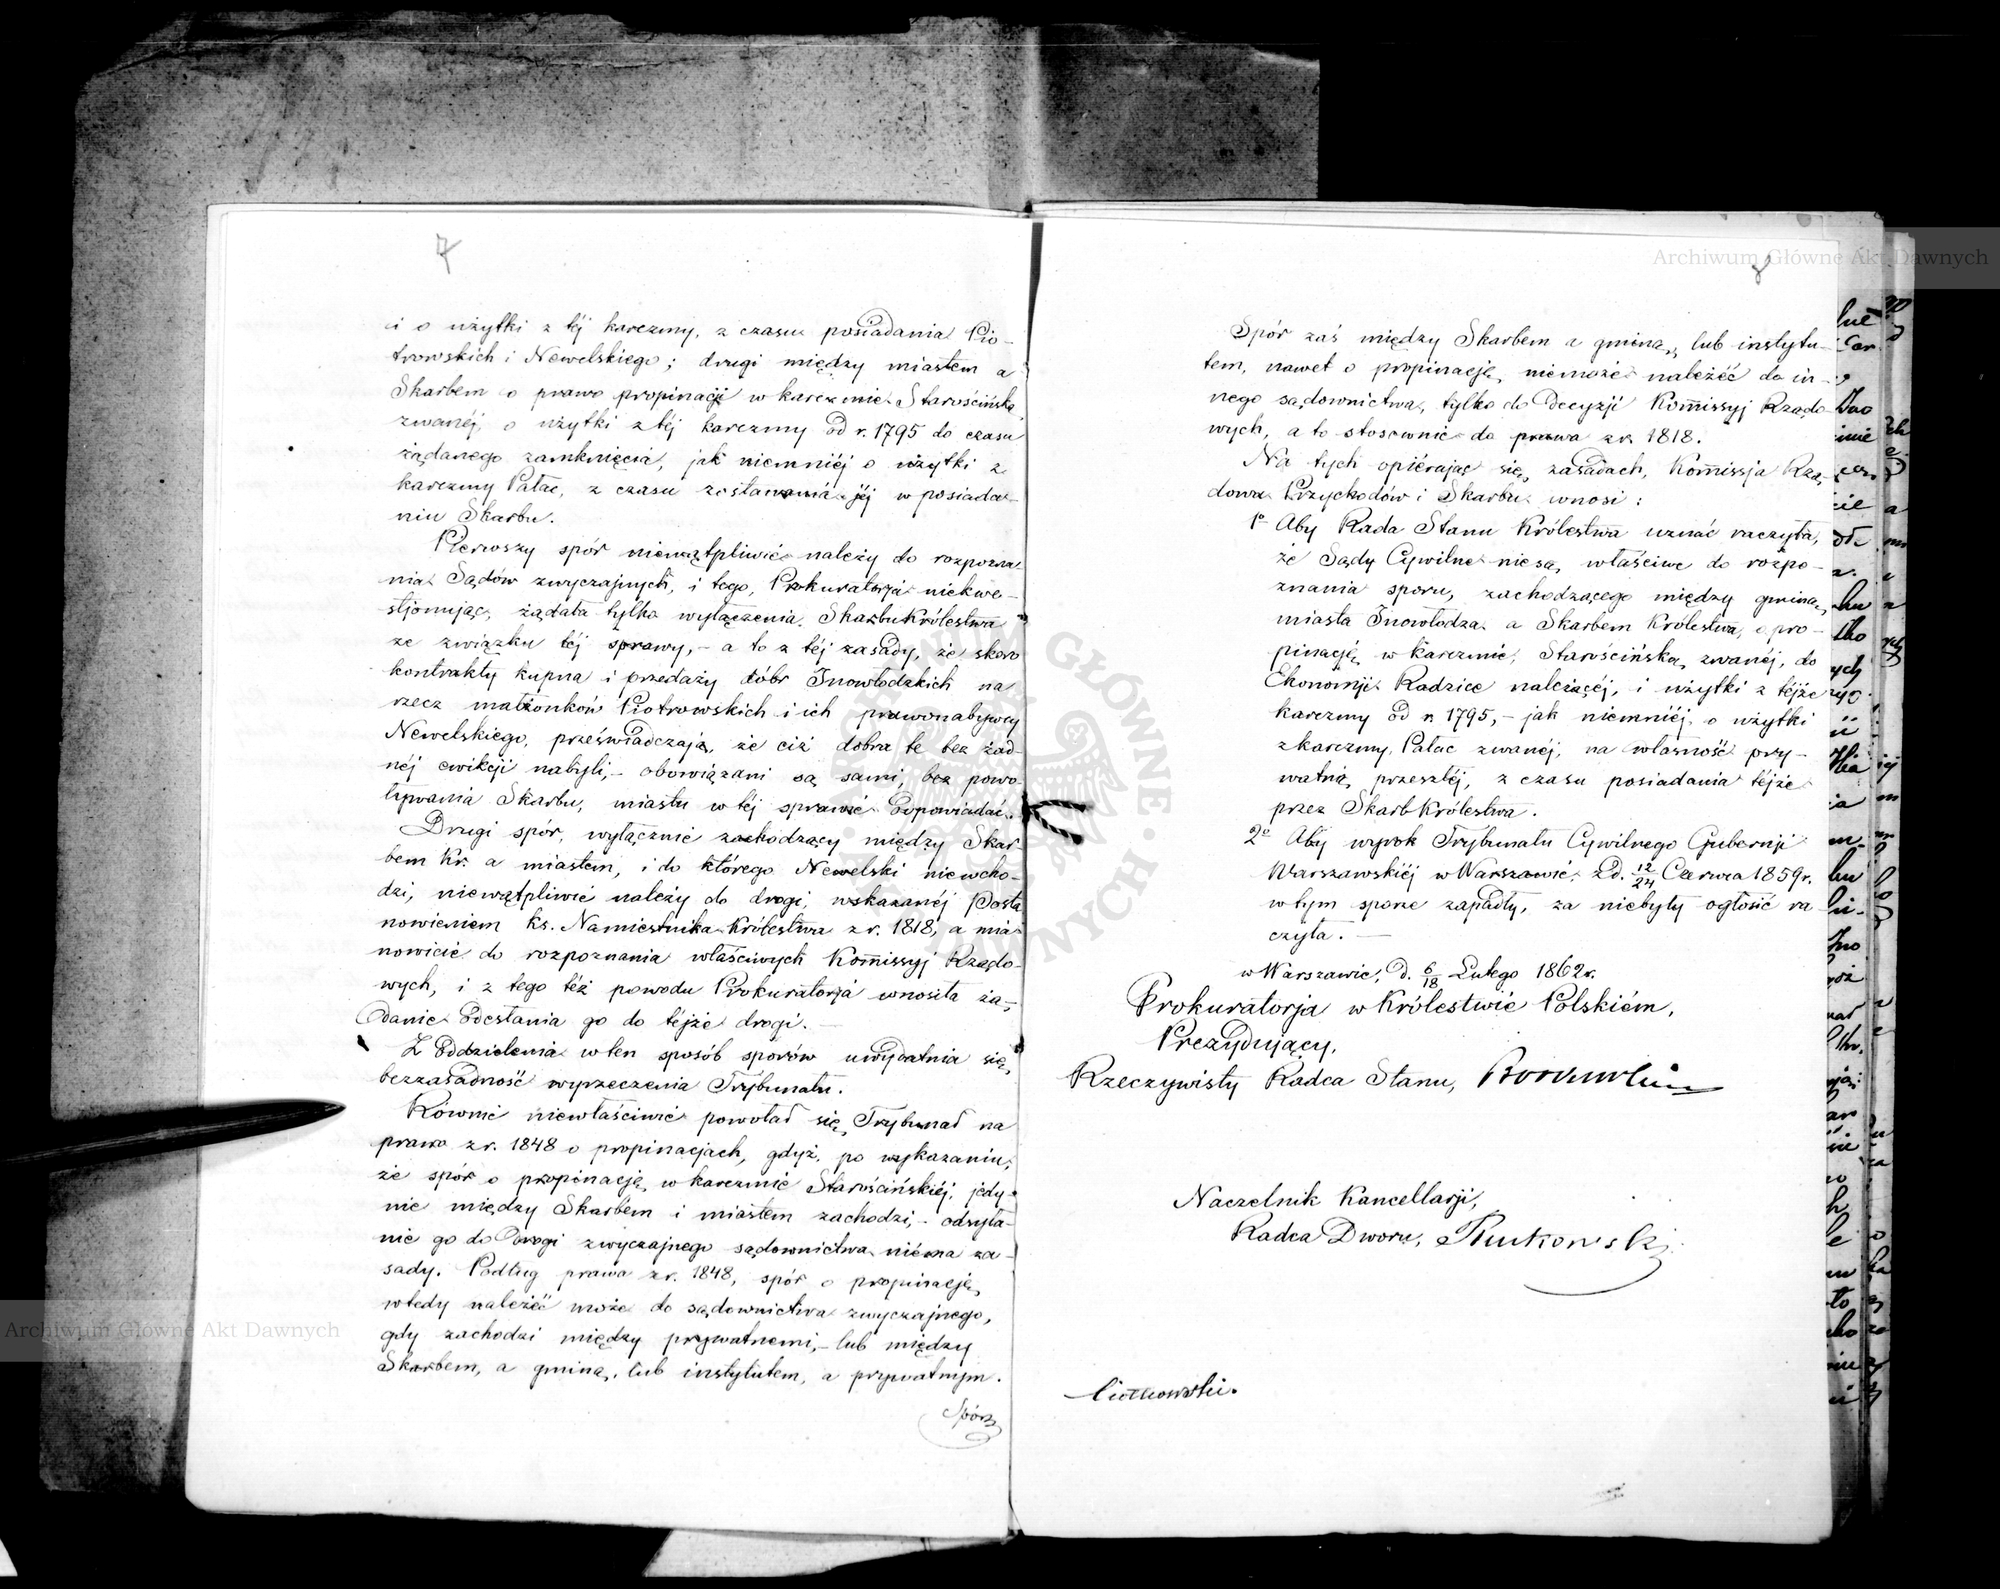 7
i o użytki z téj karczmy, z czasu posiadania Pio-
trowskich i Newelskiego; drugi między miastem a
Skarbem o prawo propinacji w karczmie Starościńską
zwanéj, o użytki z téj karczmy od r. 1795 do czasu
żądanego zamknięcia, jak niemniéj o użytki z
karczmy Pałac, z czasu zostawania jéj w posiada-
niu Skarbu.
Pierwszy spór niewątpliwie należy do rozpozna
nia Sądów zwyczajnych, i tego, Prokuratorja niekwe-
stjonując, żądała tylko wyłączenia Skarbu Królestwa
ze związku téj sprawy, – a to z téj zasady, że skoro
kontrakty kupna i przedaży dóbr Inowłodzkich na
rzecz małżonków Piotrowskich i ich prawonabywcy
Newelskiego, przeświadczają, że ciż dobra te bez żad-
néj ewikcji nabyli, – obowiązani są sami, bez powo-
ływania Skarbu, miastu w téj sprawie odpowiadać.
Drugi spór, wyłącznie zachodzący między Skar
bem Kr. a miastem, i do którego Newelski niewcho-
dzi, niewątpliwie należy do drogi, wskazanéj Posta
nowieniem ks. Namiestnika Królestwa z r. 1818, a mia-
nowicie do rozpoznania właściwych Kommissyj Rządo-
wych, i z tego też powodu Prokuratorja wnosiła żą-
danie odesłania go do téjże drogi. –
Z oddzielenia w ten sposób sporów uwydatnia się
bezzasadność wyrzeczenia Trybunału.
Równie niewłaściwie powołał się Trybunał na
prawo z r. 1848 o propinacjach, gdyż, po wykazaniu,
że spór o propinację w karczmie Starościńskiéj, jedy-
nie między Skarbem i miastem zachodzi, – odsyła-
nie go do drogi zwyczajnego sądownictwa niéma za-
sady. Podług prawa z r. 1848, spór o propinację
wtedy należéć może do sądownictwa zwyczajnego,
gdy zachodzi między prywatnemi, – lub między
Skarbem, a gminą, lub instytutem, a prywatnym.
Spór
8
Spór zaś między Skarbem a gminą, lub instytu-
tem, nawet o propinację, niemoże należéć do in-
nego sądownictwa, tylko do decyzji Kommissyj Rządo-
wych, a to stosownie do prawa z r. 1818.
Na tych opiérając się zasadach, Kommissja Rzą-
dowa Przychodów i Skarbu wnosi:
1º Aby Rada Stanu Królestwa uznać raczyła,
że Sądy Cywilne nie są właściwe do rozpo-
znania sporu, zachodzącego między gminą
miasta Inowłodza a Skarbem Królestwa, o pro-
pinację w karczmie, Starościńską zwanéj, do
Ekonomji Radzice należącéj, i użytki z téjże
karczmy od r. 1795, – jak niemniéj, o użytki
z karczmy, Pałac zwanéj, na własność pry-
watną przeszłéj, z czasu posiadania téjże
przez Skarb Królestwa.
2º Aby wyrok Trybunału Cywilnego Gubernji
Warszawskiéj w Warszawie, z d. 12/24 Czerwca 1859 r.
w tym sporze zapadły, za niebyły ogłosić ra
czyła. –
w Warszawie, d. 6/18 Lutego 1862 r.
Prokuratorja w Królestwie Polskiém,
Prezydujący,
Rzeczywisty Radca Stanu,
Naczelnik Kancellarji,
Radca Dworu,
Archiwum Główne Akt Dawnych
Archiwum Główne Akt Dawnych